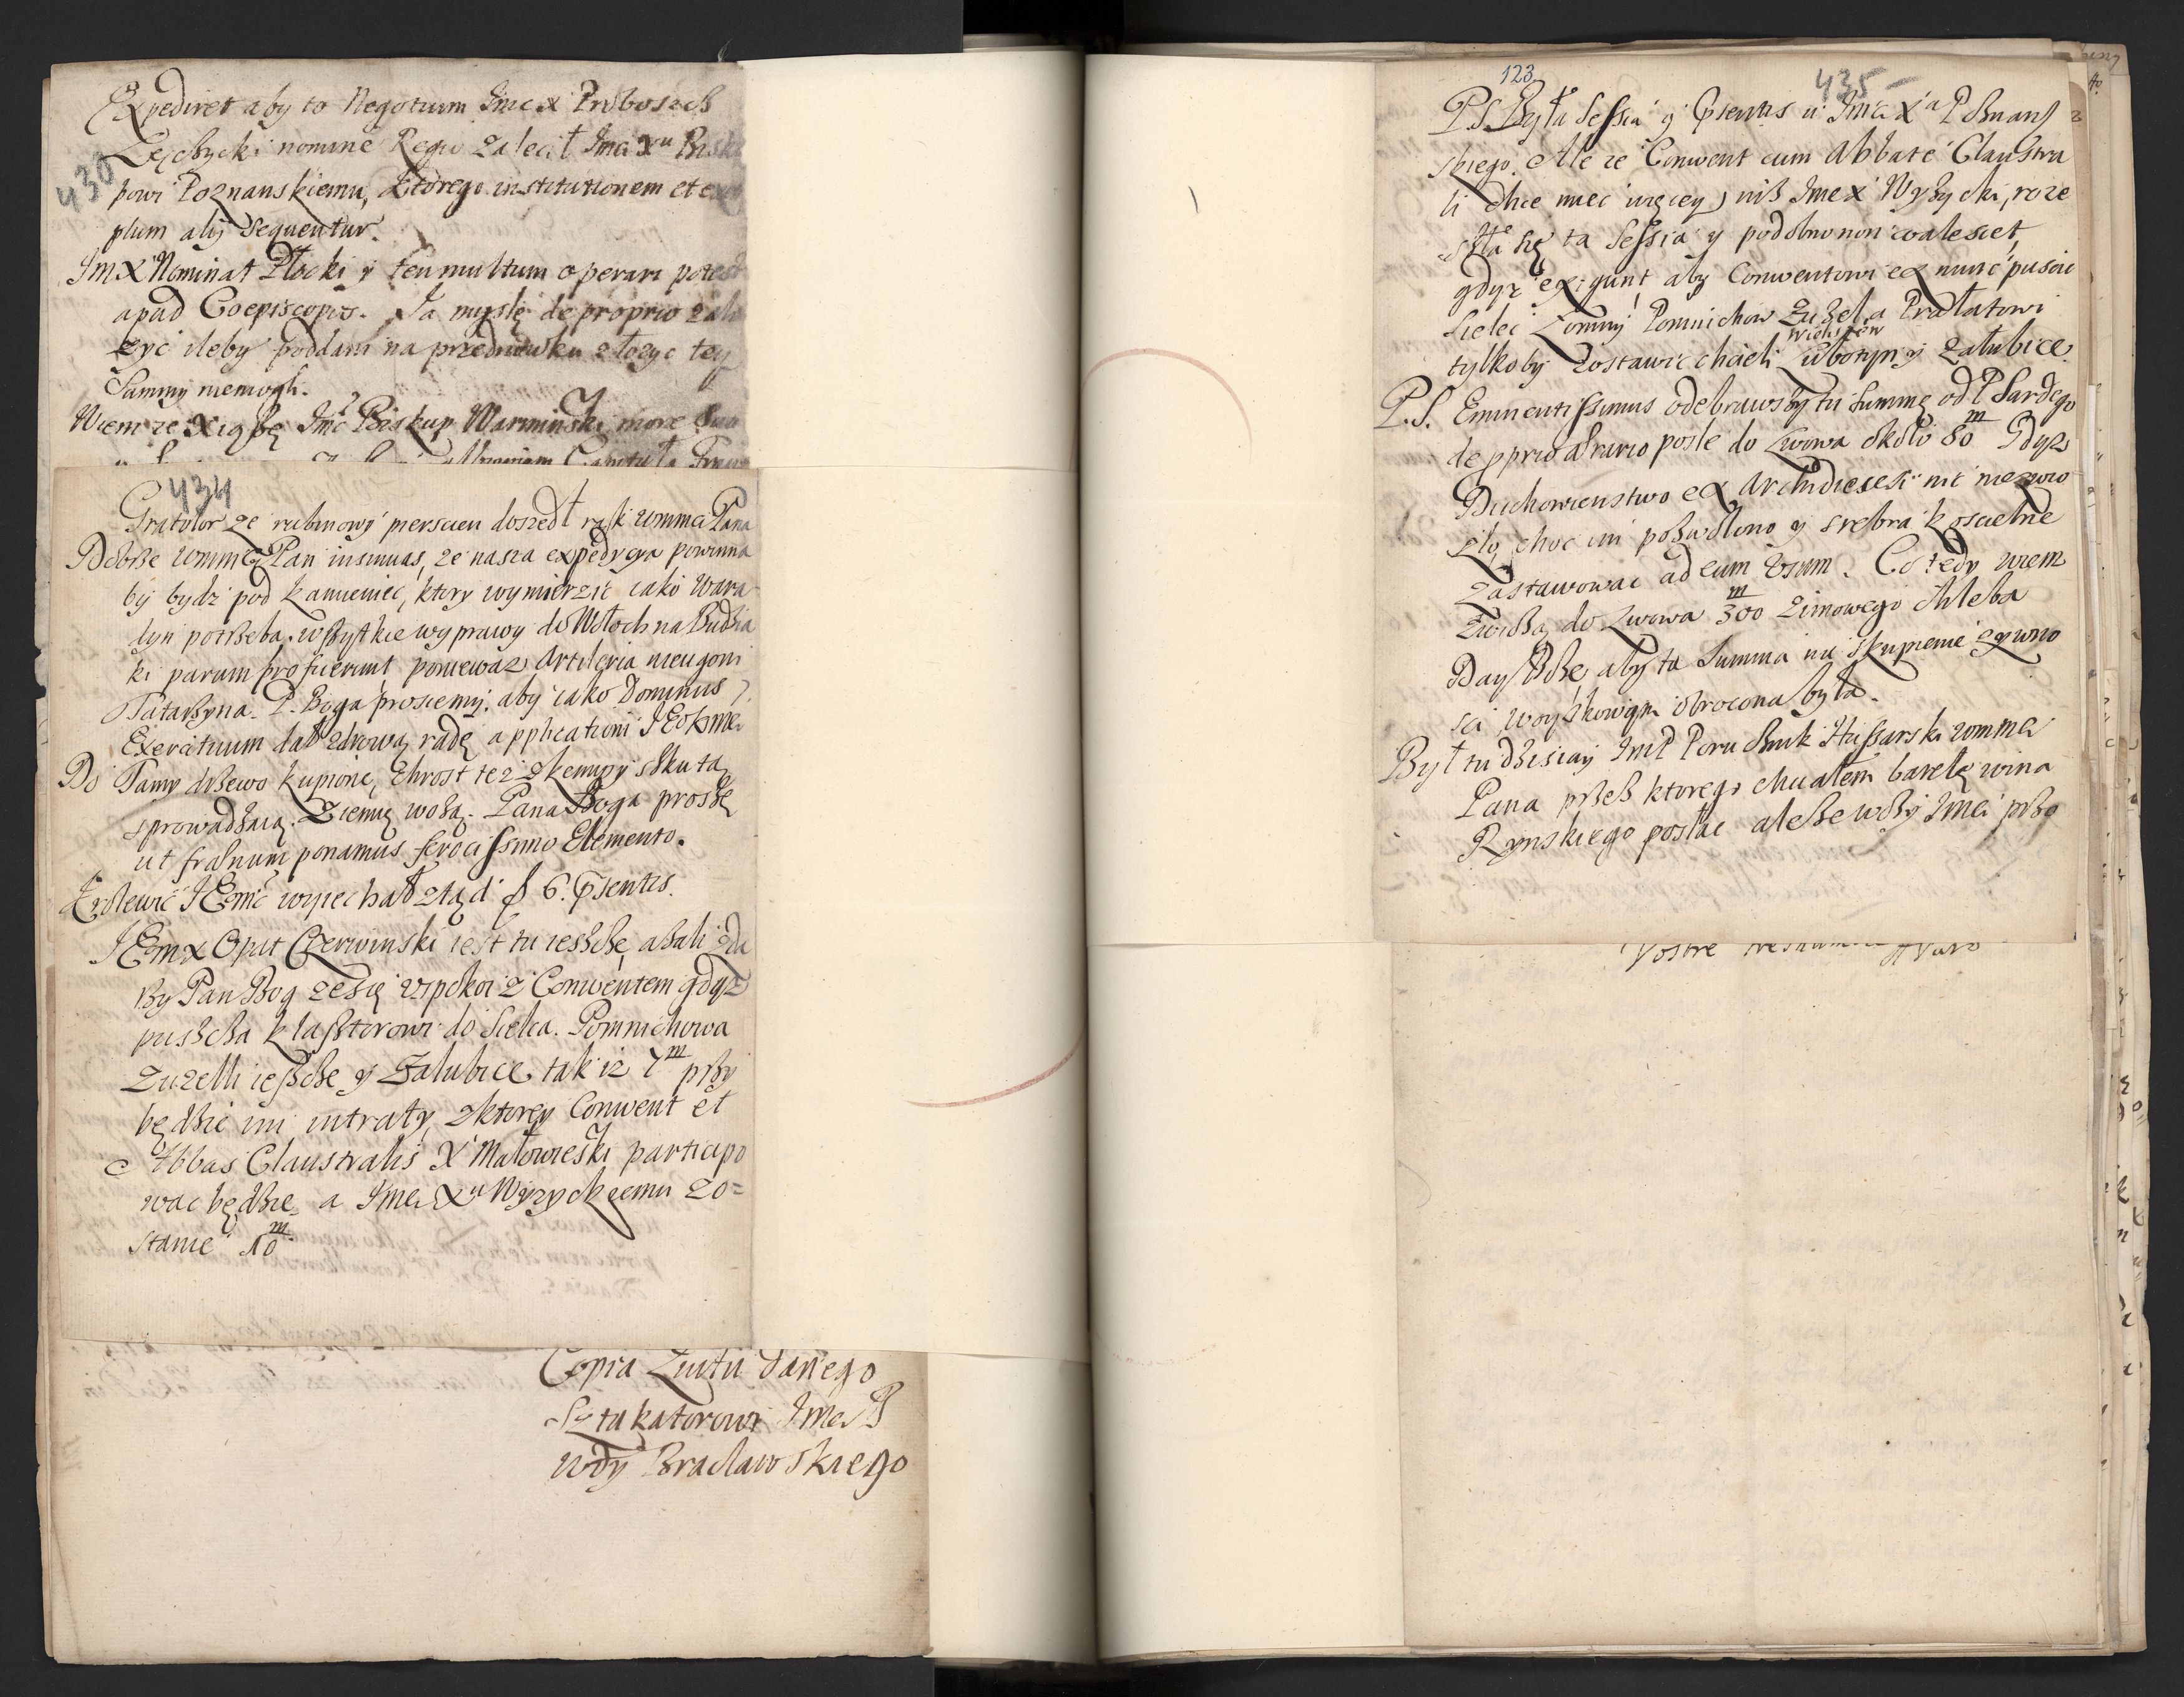 430
Expediret aby to Negotium Imc X Proboszcz
Łęczycki nomine Regio zalecił Imci Xu Bisku
powi Poznanskiemu, którego institutionem et exem
plum alij sequentur.
Im X Nominat Płocki y ten multum operari potest
apud Coepiscopos. Ja myslę de proprio zalo
zyc ileby poddani na przednowku złozyc tey
Summy niemogli.
Wiem ze Xiąże Imc Biskup Warminski more suo
434
Gratulor ze rubinowy pierscien doszedł rąk Wmmci Pana
Dobrze Wmmc Pan insinuas, ze nasza expedycya powinna
by bydz pod Kamieniec, ktory wymierzic iako Wara
dyn potrzeba. wszystkie wyprawy do Włoch na Budzia
ki parum profuerunt, poniewaz Artileria nieugoni
Tatarzyna. P. Boga prosiemy, aby iako Dominus
Exercituum dał zdrową radę applicationi
Do Tamy drzewo kupione, Chrost tez z Kempy szkutą
sprowadzaią. Ziemię wożą. Pana Boga proszę
ut frænum ponamus ferocissimo Elemento.
Krolewic wyiechał ztąd d 6. Psentis.
X Opat Czerwinski iest tu ieszcze, azali zda
rzy Pan Bog ze się uspokoi z Conwentem gdyz
puszcza klasztorowi do Sielca. Pomnichowa
Zuzelli ieszcze y Załubice tak iz 7 m przy
będzie im intraty, z ktorey Conwent et
Abbas Claustralis X Małowieski participo
wac będzie, a Imci Xu Wyzyckiemu zo=
stanie 10 m.
Copia Listu danego
Sztukatorowi Imci P
Wdy Bracławskiego
123
435
P.S. Była Sessia 9 Psentis u Imci Xa P
skiego. Ale ze Conwent cum Abbate Claustra
li chce miec więcey, niż Imc X Wyzycki, roze
szła się ta Sessia y podobno non coalescet,
gdyz exigunt aby Conwentowi ex nunc puscic
Sielec Pomnichow Zuzel a Prałatowi
wiosk
tylkoby zostawic chcieli y Załubice.
P.S. Eminentissimus odebrawszy tu summę od P Sardego
de pprio ærario posle do Lwowa około 80 m Gdyz
Duchowienstwo ex Archidiecesi nic niezwio
zło, choc im pozwolono y srebra koscielne
Zastawowac ad eum Usum. Co tedy wiem
Zwiozą do Lwowa 300 m zimowego chleba
Day Boże, aby ta Summa na skupienie zywno
sci woyskowym obrocona była.
Był tu dzisiay ImP Porucznik Hussarski Wmmci
Pana przez ktorego chciałem baryłę wina
Rynskiego posłac ale
Vostre tres